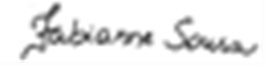 Fabianne Sousa